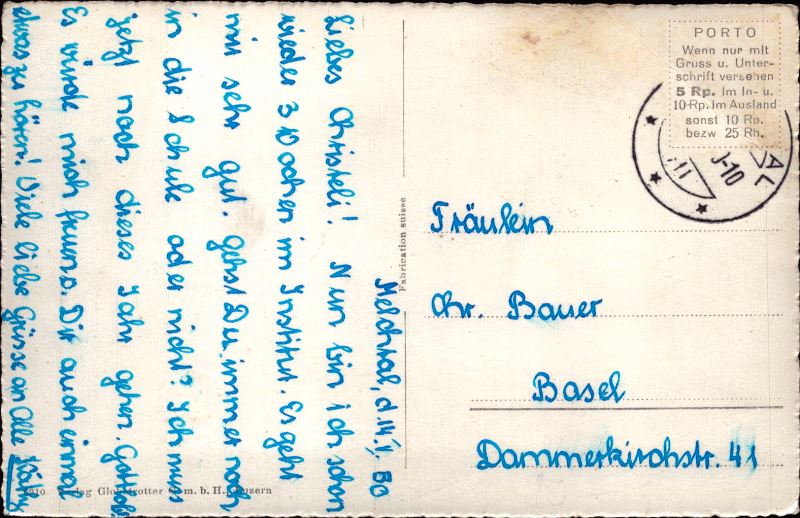 Melchtal, d. 14.1.50
Liebes Christeli! Nun bin ich schon
wieder 3 Wochen im Institut. Es geht
mir sehr gut. Gehst Du immer noch
in die Schule oder nicht? Ich muss
jetzt noch dieses Jahr gehen. Gottlob!
Es würde mich freuen. Dir auch einmal
etwas zu hören! Viele liebe Grüsse an Alle
Fabrication suisse
PORTO
Wenn nur mit
Gruss u. Unter-
schrift versehen
5 Rp. Im In- u.
10 Rp. Im Ausland
sonst 10 Rp.
bezw 25 Rh.
AL
-10
11
Fräulein
Chr. Bauer
Basel
Dammerkirchstr. 41
Globetrotter G.m.b.H. Luzern